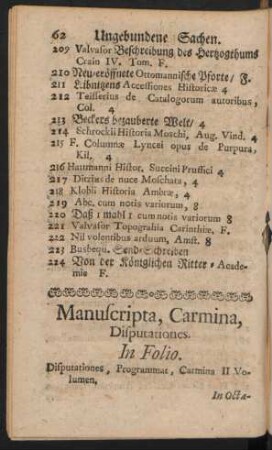 62 Ungebundene Sachen.
209 Valvasor Beschreibung des Hertzogthums
Crain IV. Tom. F.
210 Neu-eröffnete Ottomannische Pforte/ F.
211 Libnitzens Accessiones Historicæ 4
212 Teisserius de Catalogorum autoribus,
Col. 4
213 Beckers bezauberte Welt/ 4
214 Schrockii Historia Moschi, Aug. Vind. 4
215 F. Columnæ Lyncei opus de Purpura,
Kil. 4
216 Hartmanni Histor. Succini Prussici 4
217 Dietzius de nuce Moschata, 4
218 Klobii Historia Ambræ, 4
219 Abc. cum notis variorum, 8
220 Daß 1 mahl 1 cum notis variorum 8
221 Valvasor Topograsia Carinthiæ, F.
222 Nil volentibus arduum, Amst. 8
223 Busbequ. Send-Schreiben
224 Von der Königlichen Ritter-Acade-
mie F.
Manuscripta, Carmina,
Disputationes.
In Folio.
Disputationes, Programmat, Carmina II Vo-
lumen.
In Octa-